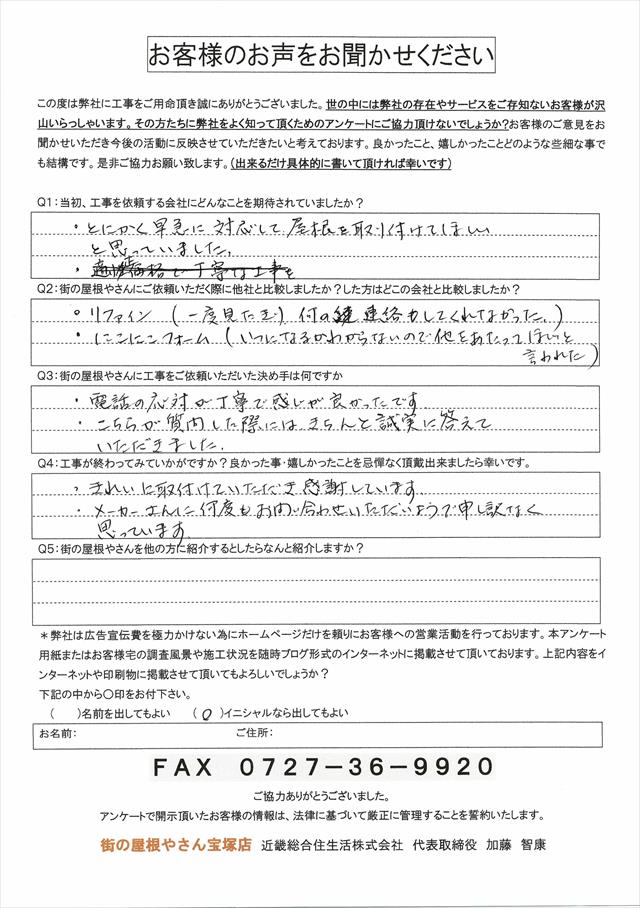 お客様のお声をお聞かせください
この度は弊社に工事をご用命頂き誠にありがとうございました。世の中には弊社の存在やサービスをご存知ないお客様が沢
山いらっしゃいます。その方たちに弊社をよく知って頂くためのアンケートにご協力頂けないでしょうか?お客様のご意見をお
聞かせいただき今後の活動に反映させていただきたいと考えております。良かったこと、嬉しかったことどのような些細な事で
も結構です。是非ご協力お願い致します。(出来るだけ具体的に書いて頂ければ幸いです)
Q1:当初、工事を依頼する会社にどんなことを期待されていましたか?
・とにかく早急に対応して屋根を取り付けてほしい
と思っていました。
Q2:街の屋根やさんにご依頼いただく際に他社と比較しましたか?した方はどこの会社と比較しましたか?
・リファイン (一度見たぎり) 何の連絡もしてくれなかった。)
・にこにこフォーム (いつになるかわからないので他をあたってほしいと
言われた)
Q3:街の屋根やさんに工事をご依頼いただいた決め手は何ですか
・電話の応対が丁寧で感じが良かったです。
・こちらが質問した際にはきちんと誠実に答えて
いただきました。
Q4:工事が終わってみていかがですか?良かった事・嬉しかったことを忌憚なく頂戴出来ましたら幸いです。
・きれいに取付けていただき感謝しています。
・メーカーさんに何度もお問い合わせいただいようで申し訳なく
思っています。
Q5:街の屋根やさんを他の方に紹介するとしたらなんと紹介しますか?
*弊社は広告宣伝費を極力かけない為にホームページだけを頼りにお客様への営業活動を行っております。本アンケート
用紙またはお客様宅の調査風景や施工状況を随時ブログ形式のインターネットに掲載させて頂いております。上記内容をイ
ンターネットや印刷物に掲載させて頂いてもよろしいでしょうか?
下記の中から〇印をお付下さい。
( )名前を出してもよい (○)イニシャルなら出してもよい
お名前: ご住所:
FAX 0727-36-9920
ご協力ありがとうございました。
アンケートで開示頂いたお客様の情報は、法律に基づいて厳正に管理することを誓約いたします。
街の屋根やさん宝塚店 近畿総合住生活株式会社 代表取締役 加藤 智康